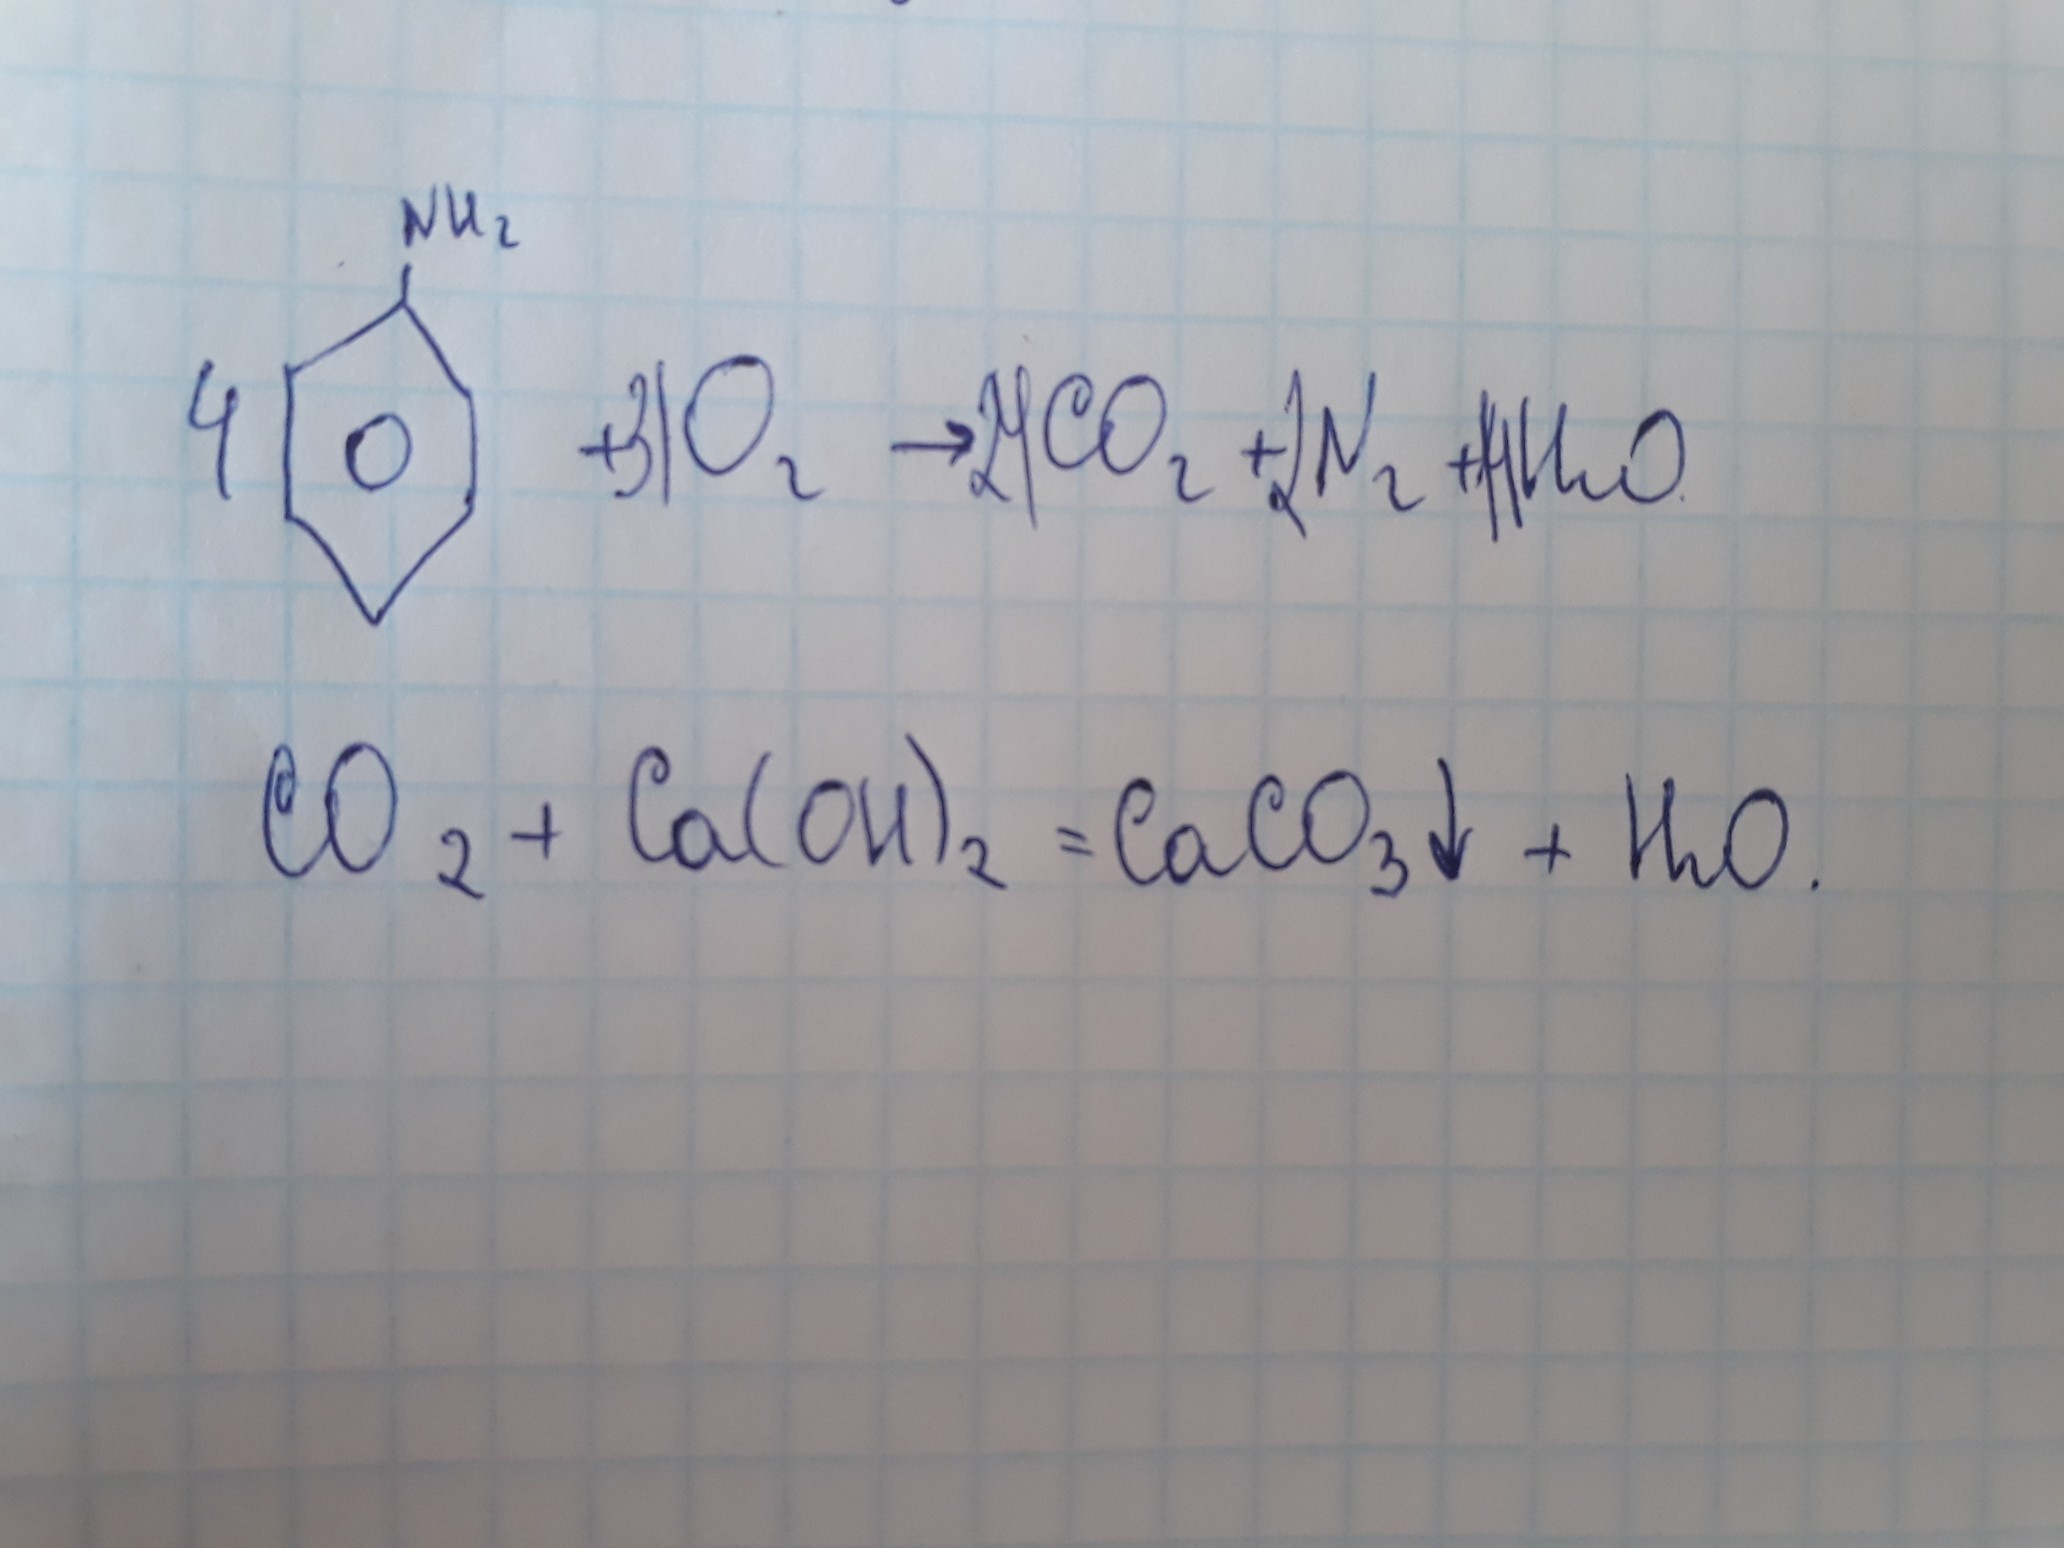 NH₂
4 + 31O₂ → 24CO₂ + 2N₂ + 14H₂O
CO₂ + Ca(OH)₂ = CaCO₃↓ + H₂O.